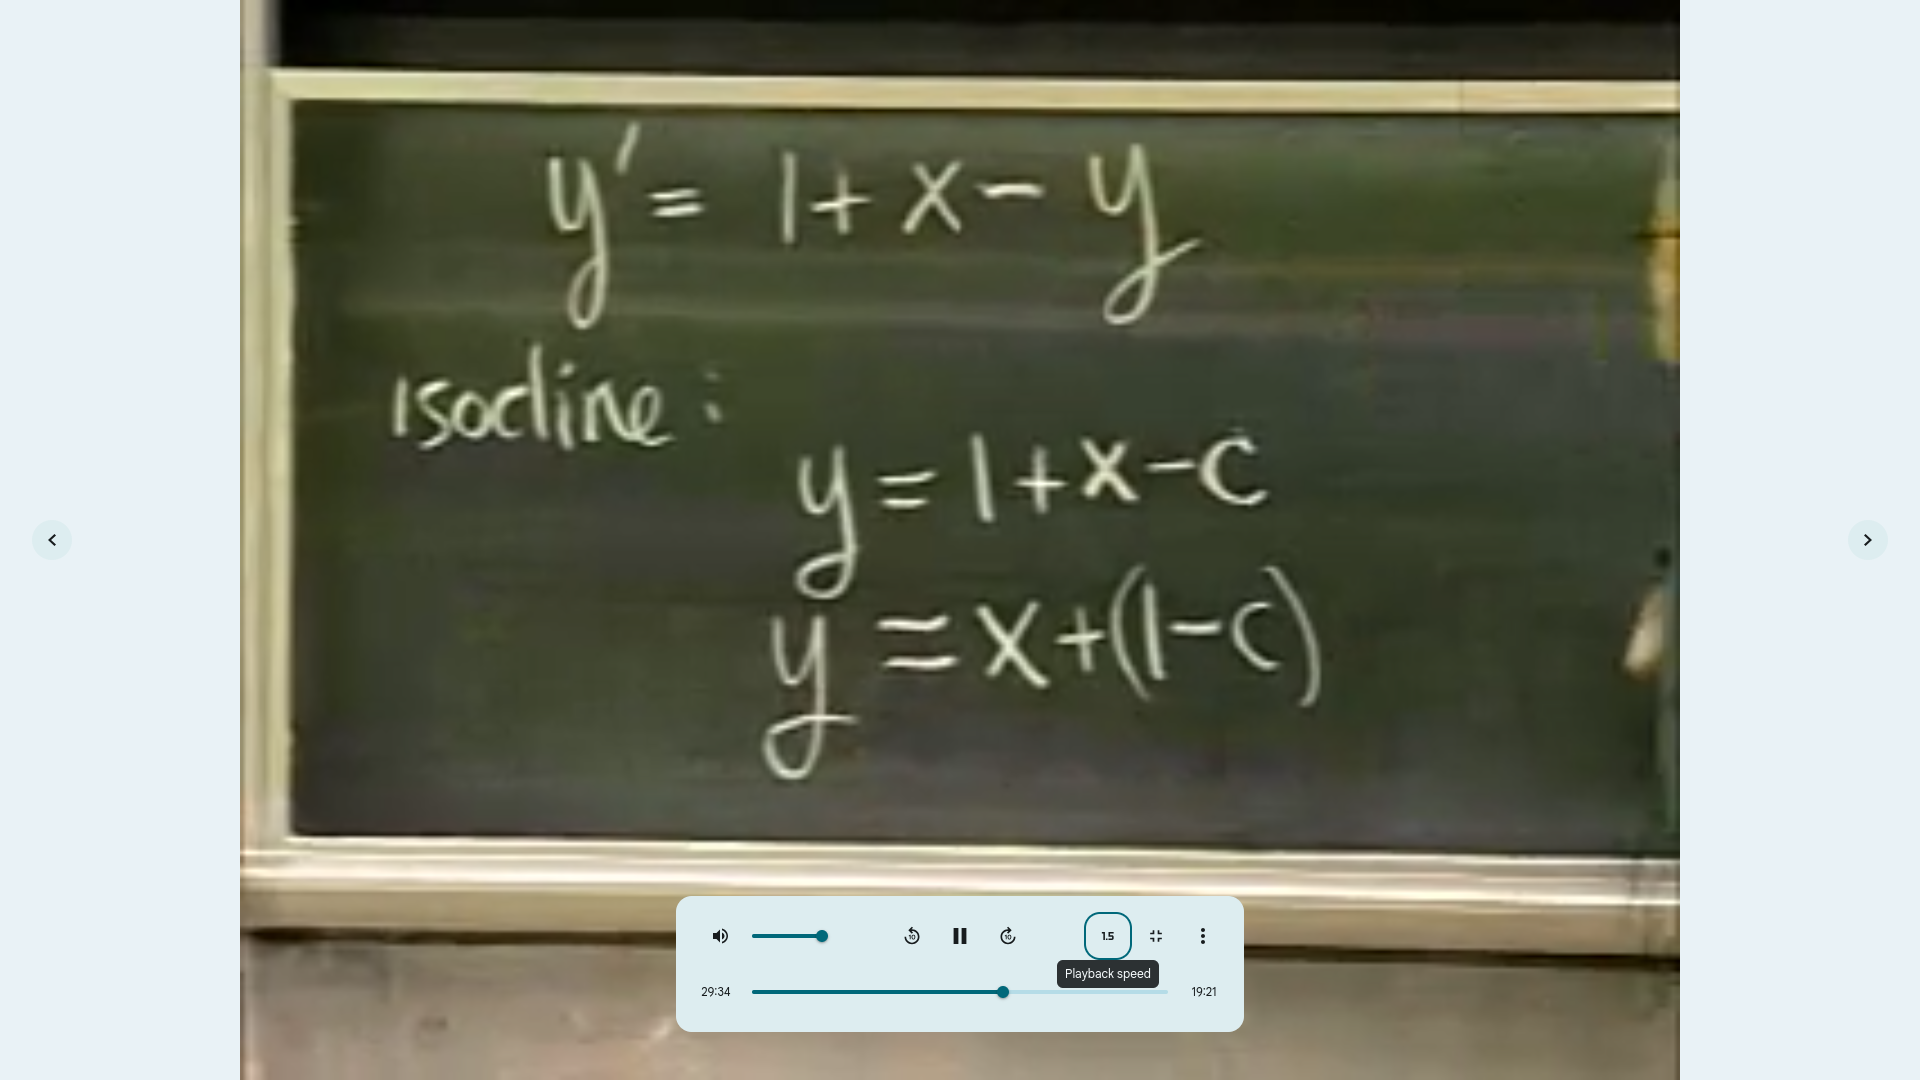 y' = 1 + x - y
isocline :
y = 1 + x - c
y = x + (1 - c)
10
10
1.5
Playback speed
29:34
19:21